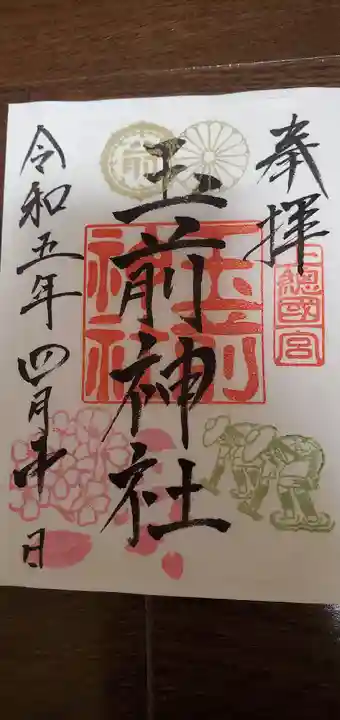 奉拝
上總國一宮
玉前神社
玉前神社
令和五年四月廿日